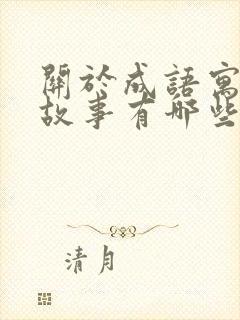 關於成語寓
故事有哪些
清月